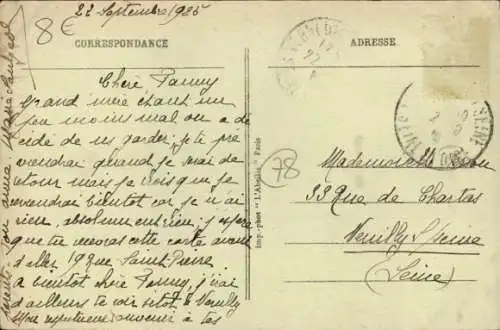 22 Septembre 1925
8€
CORRESPONDANCE
ADRESSE
Chère Fanny
Grand mère étant un
peu moins mal on a dé
cidé de us garder; je te pré
viendrai quand je serai de
retour mais je crois que je
reviendrai bientôt car je n'ai
rien, absolument rien; j'espère
que tu recevras cette carte avant
d'aller 19 rue Saint Pierre
A bientôt chère Fanny, j'irai
d'ailleurs te voir sitôt à Neuilly
souvenir à tes
ton amie
Imp.-phot "L'Abeille" Paris
78
Mademoiselle
33 Rue de Chartres
Neuilly S/Seine
(Seine)